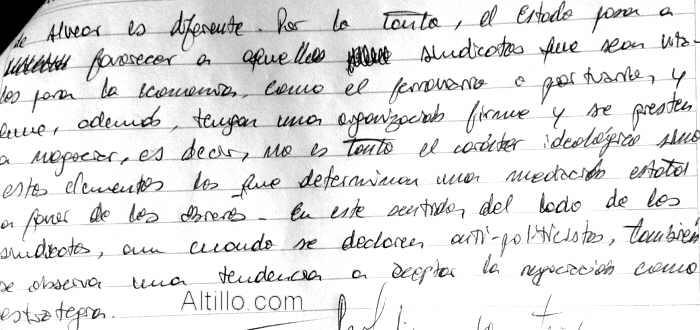 de Alvear es diferente. Por lo tanto, el Estado pasa a
favorecer a aquellos sindicatos que sean vita-
les para la economía, como el ferroviario o portuario, y
que, además, tengan una organización firme y se presten
a negociar, es decir, no es tanto el carácter ideológico sino
estos elementos los que determinan una mediación estatal
a favor de los obreros. En este sentido, del lado de los
sindicatos, aun cuando se declaren anti-politicistas, también
se observa una tendencia a aceptar la negociación como
estrategia.
Altillo.com